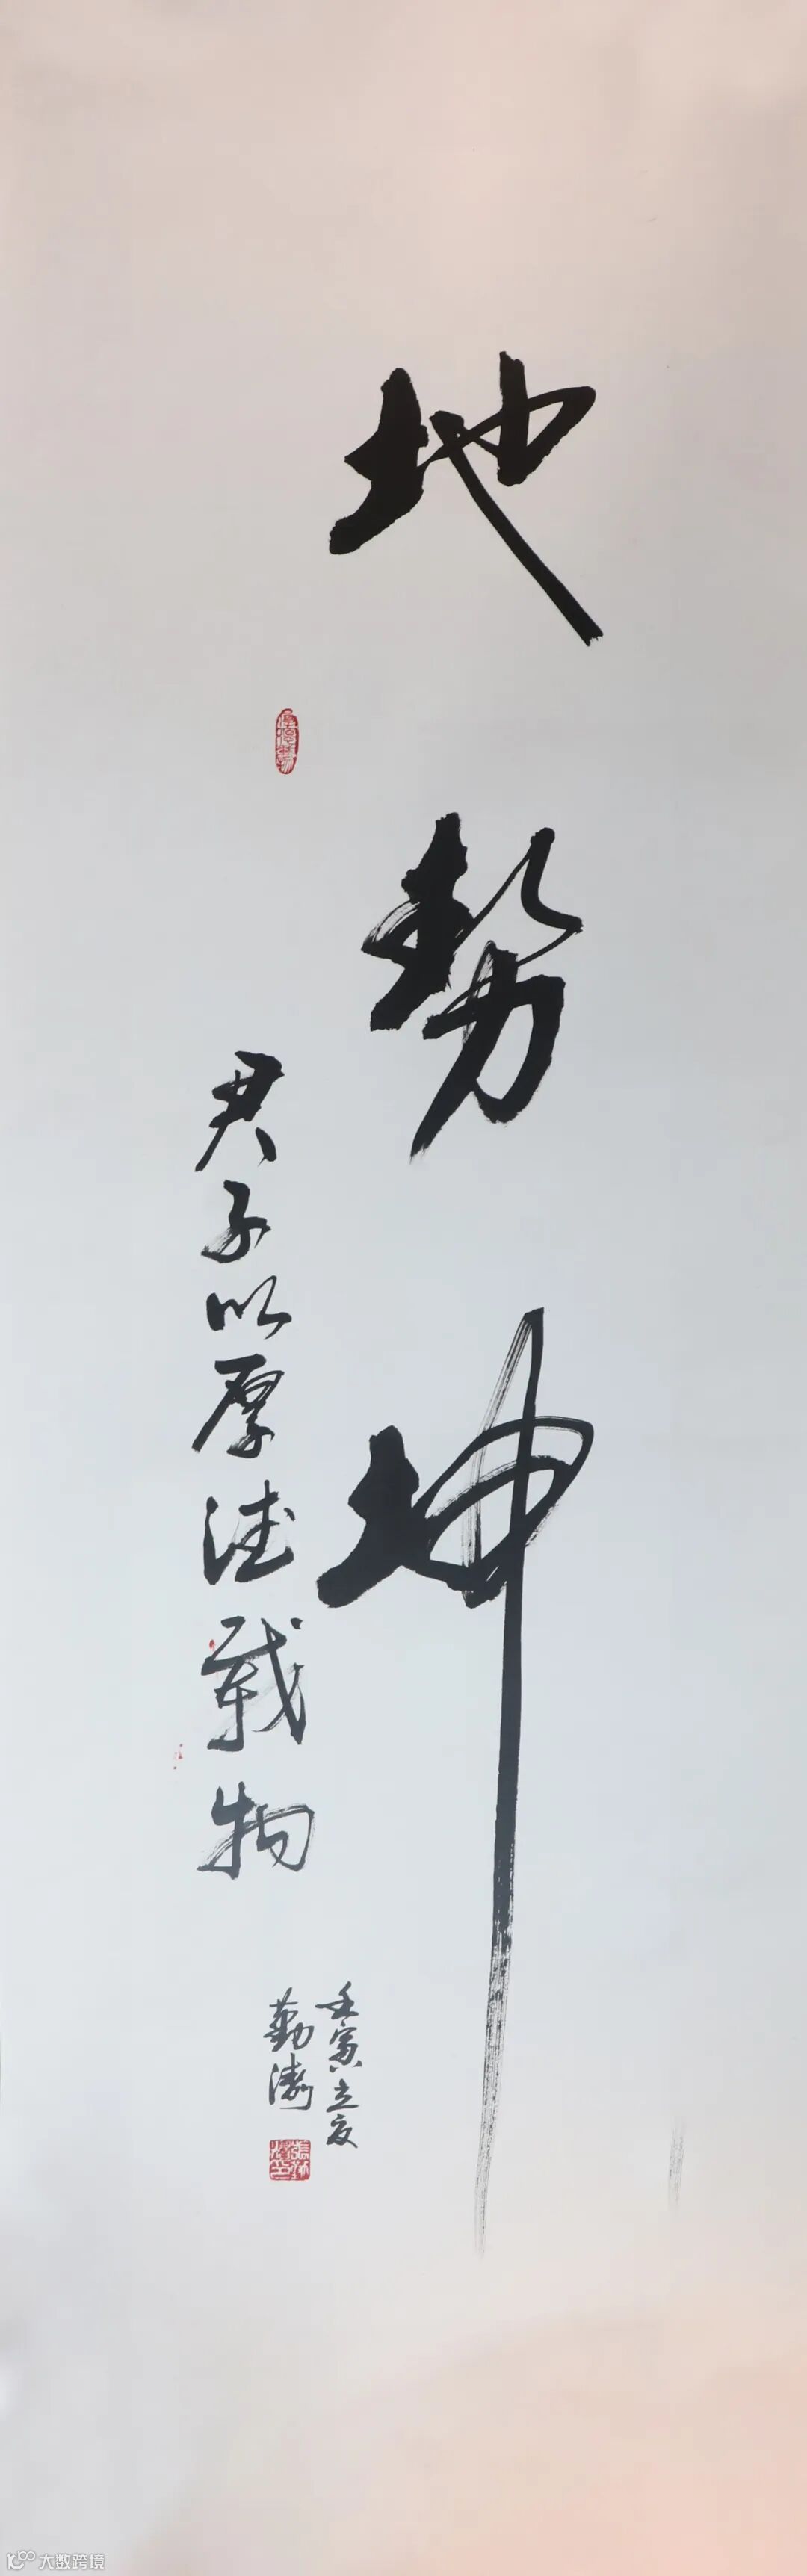 地势坤
君子以厚德载物
壬寅立夏
勤涛
大数跨境